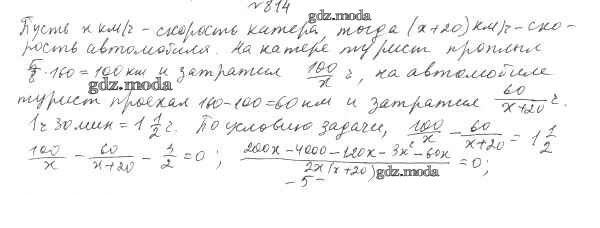 №814
gdz.moda
Пусть x км/ч - скорость катера, тогда (x+20) км/ч - ско-
рость автомобиля. На катере турист проплыл
5/8 · 160 = 100 км и затратил 100/x ч, на автомобиле
gdz.moda
турист проехал 160-100=60 км и затратил 60/x+20 ч.
1ч 30 мин = 1 1/2 ч. По условию задачи, 100/x - 60/x+20 = 1 1/2
100/x - 60/x+20 - 3/2 = 0; 200x-4000-120x-3x²-60x/2x(x+20) = 0;
gdz.moda
-5-